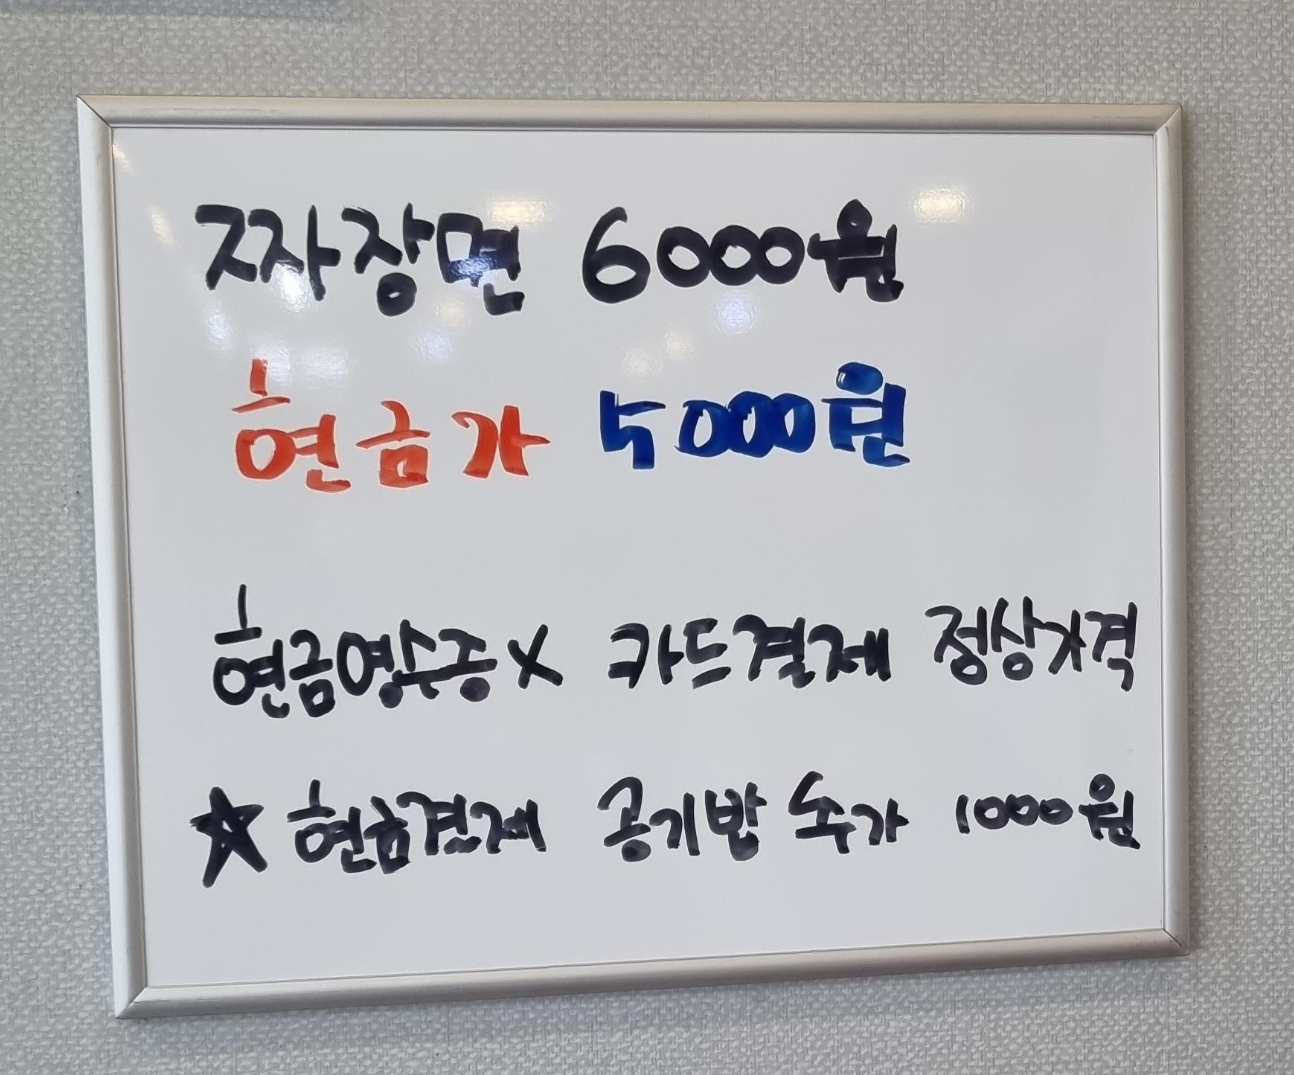 짜장면 6000원
현금가 5000원
현금영수증X 카드결제 정상가격
☆현금결제 공기밥 추가 1000원